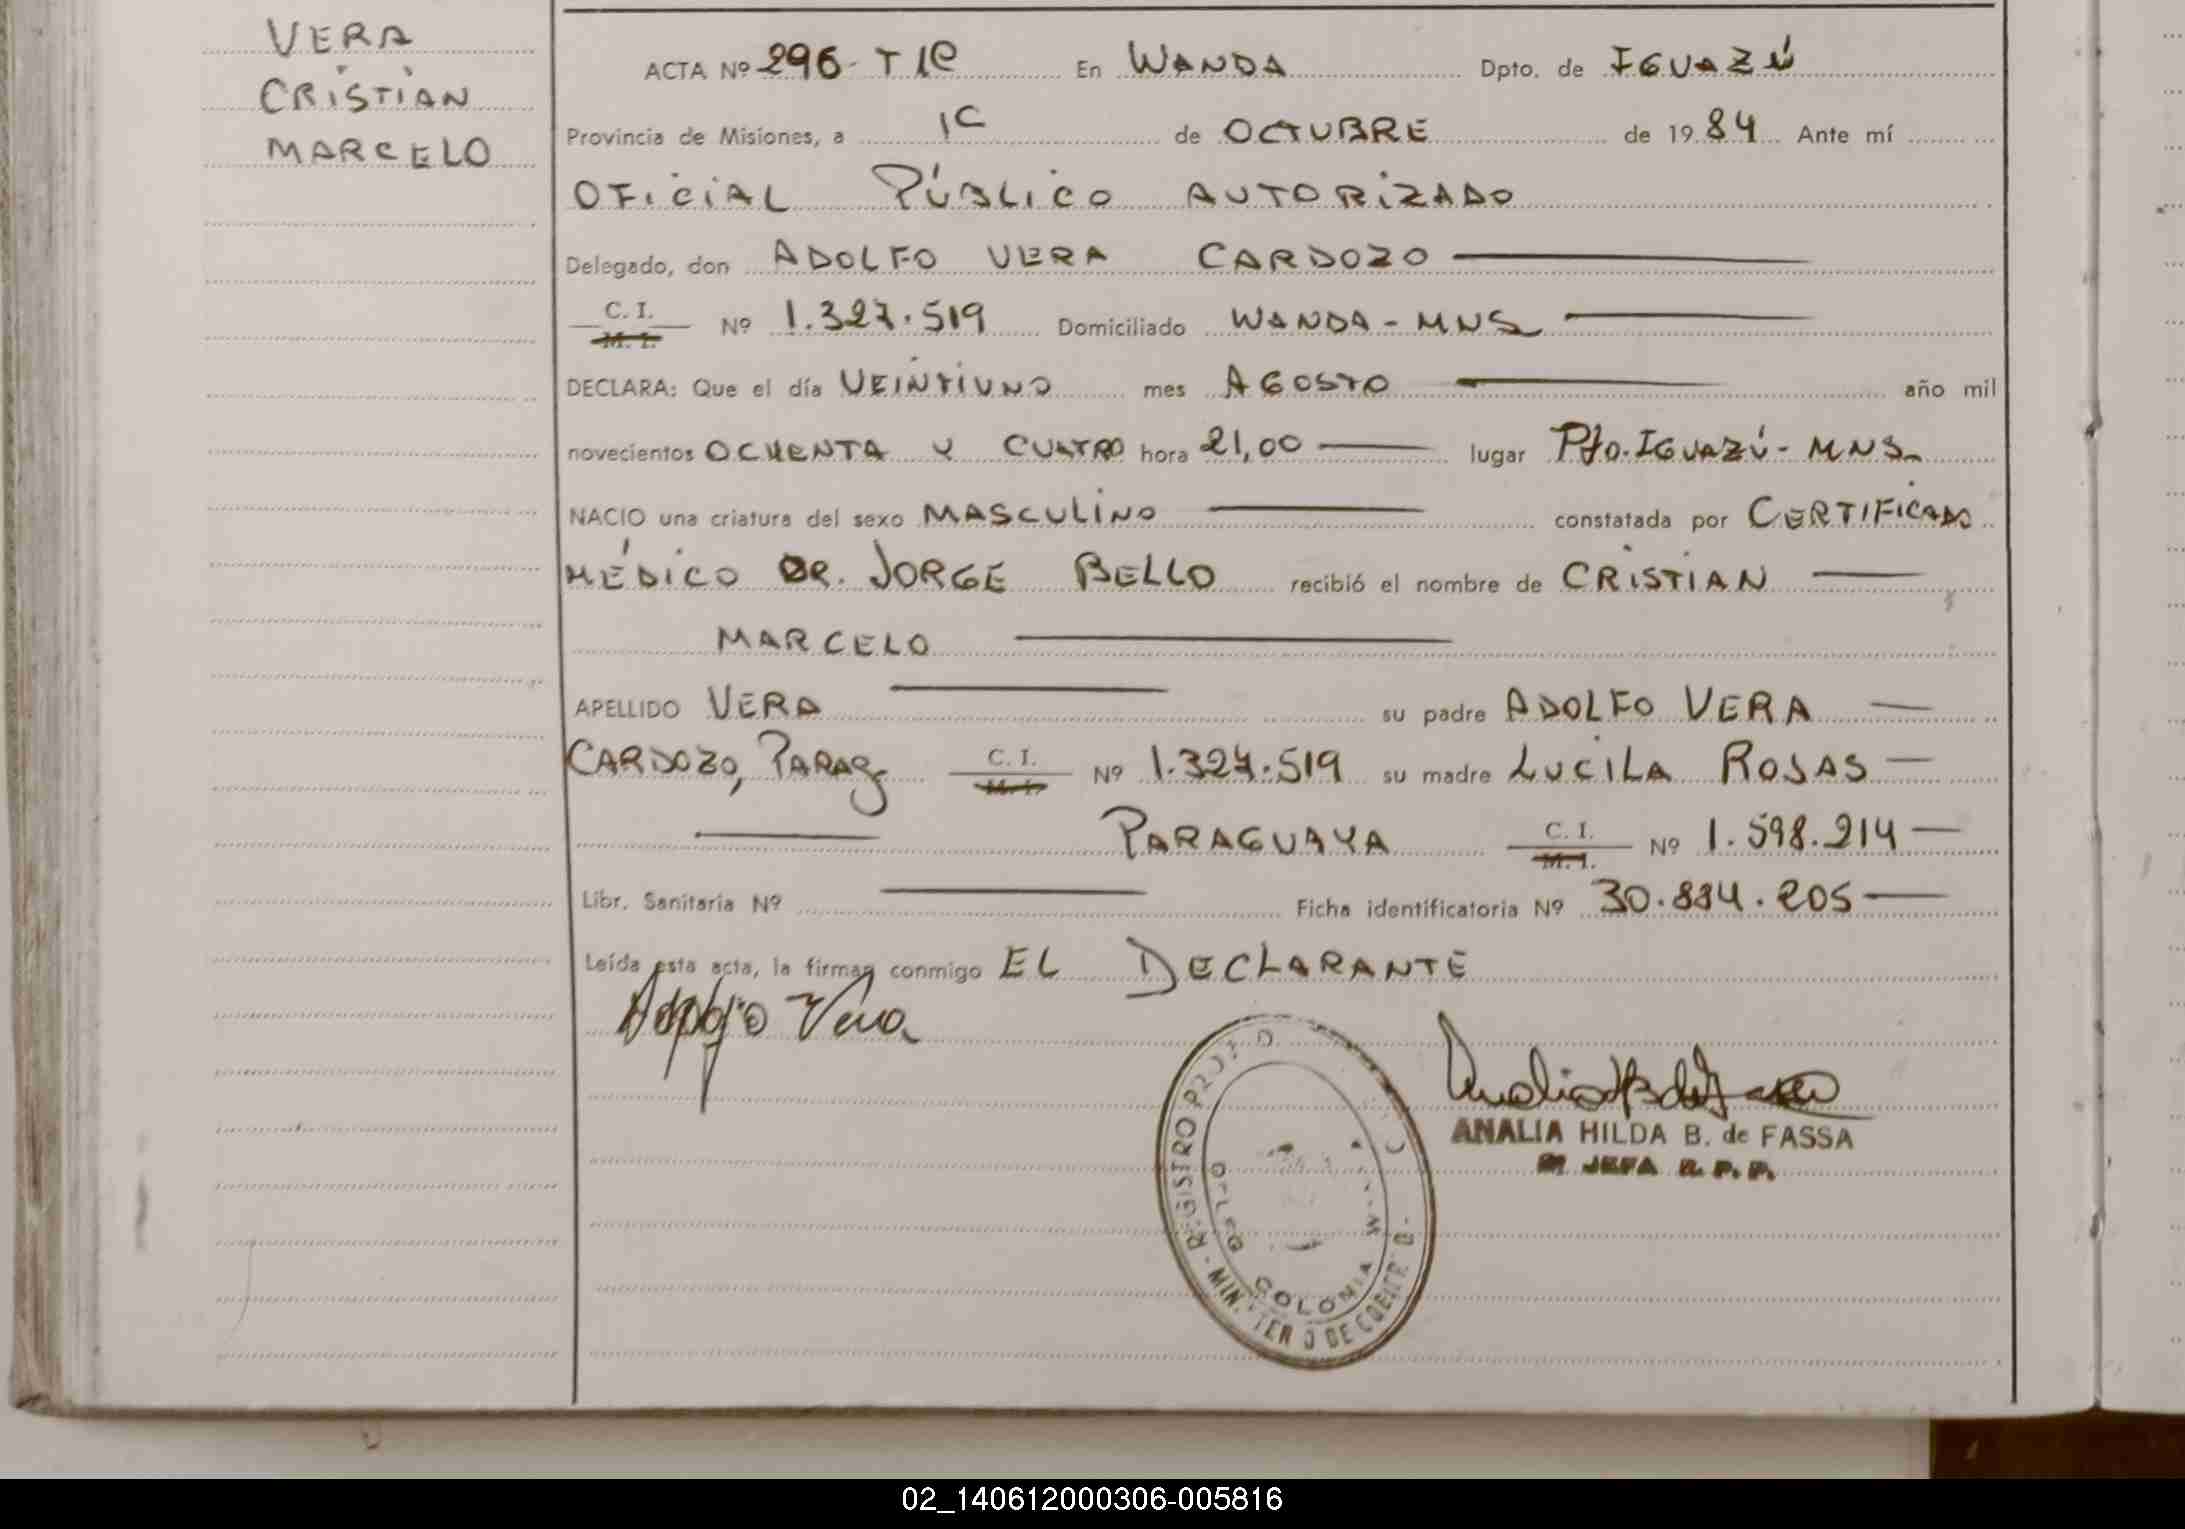 VERA
CRISTIAN
MARCELO
ACTA Nº 296- T 1C En WANDA Dpto. de IGUAZÚ
Provincia de Misiones, a 1C de OCTUBRE de 1984 Ante mí
OFICIAL PÚBLICO AUTORIZADO
Delegado, don ADOLFO VERA CARDOZO
C. I.
M. I. Nº 1.327.519 Domiciliado WANDA-MNS
DECLARA: Que el día VEINTIUNO mes AGOSTO año mil
novecientos OCHENTA Y CUATRO hora 21,00 lugar Pto. IGUAZÚ- MNS.
NACIO una criatura del sexo MASCULINO constatada por CERTIFICADO
MÉDICO DR. JORGE BELLO recibió el nombre de CRISTIAN
MARCELO
APELLIDO VERA su padre ADOLFO VERA
CARDOZO, PARAG C. I.
M. I. Nº 1.327.519 su madre LUCILA ROJAS
PARAGUAYA C. I.
M. I. Nº 1.598.214
Libr. Sanitaria Nº Ficha identificatoria Nº 30.884.205
Leída esta acta, la firman conmigo EL DECLARANTE
Adolfo Vera
REGISTRO COLONIA
ANALIA HILDA B. de FASSA
JEFA R. P. P.
02_140612000306-005816